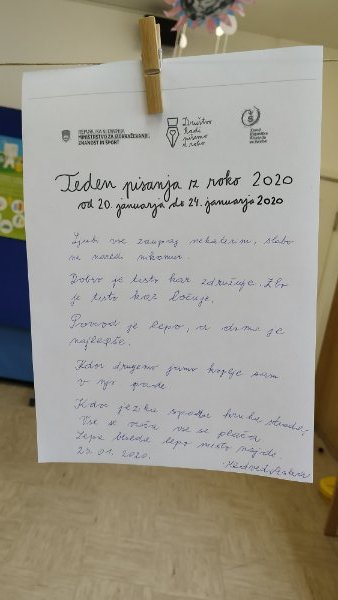 REPUBLIKA SLOVENIJA
MINISTRSTVO ZA IZOBRAŽEVANJE,
ZNANOST IN ŠPORT
Društvo
Radi
pišemo
z roko
Teden pisanja z roko 2020
od 20. januarja do 24. januarja 2020
Ljubi vse zaupaj nekaterim, slabo
ne naredi nikomur.
Dobro je tisto kar združuje. Zlo
je tisto kar ločuje.
Povsod je lepo, a doma je
najlepše.
Kdor drugemu jamo koplje sam
v njo pade.
Kdor jezika špara kruha strada,
Vse se vrača vse se plača
Lepa beseda lepo mesto najde.
23. 01. 2020.